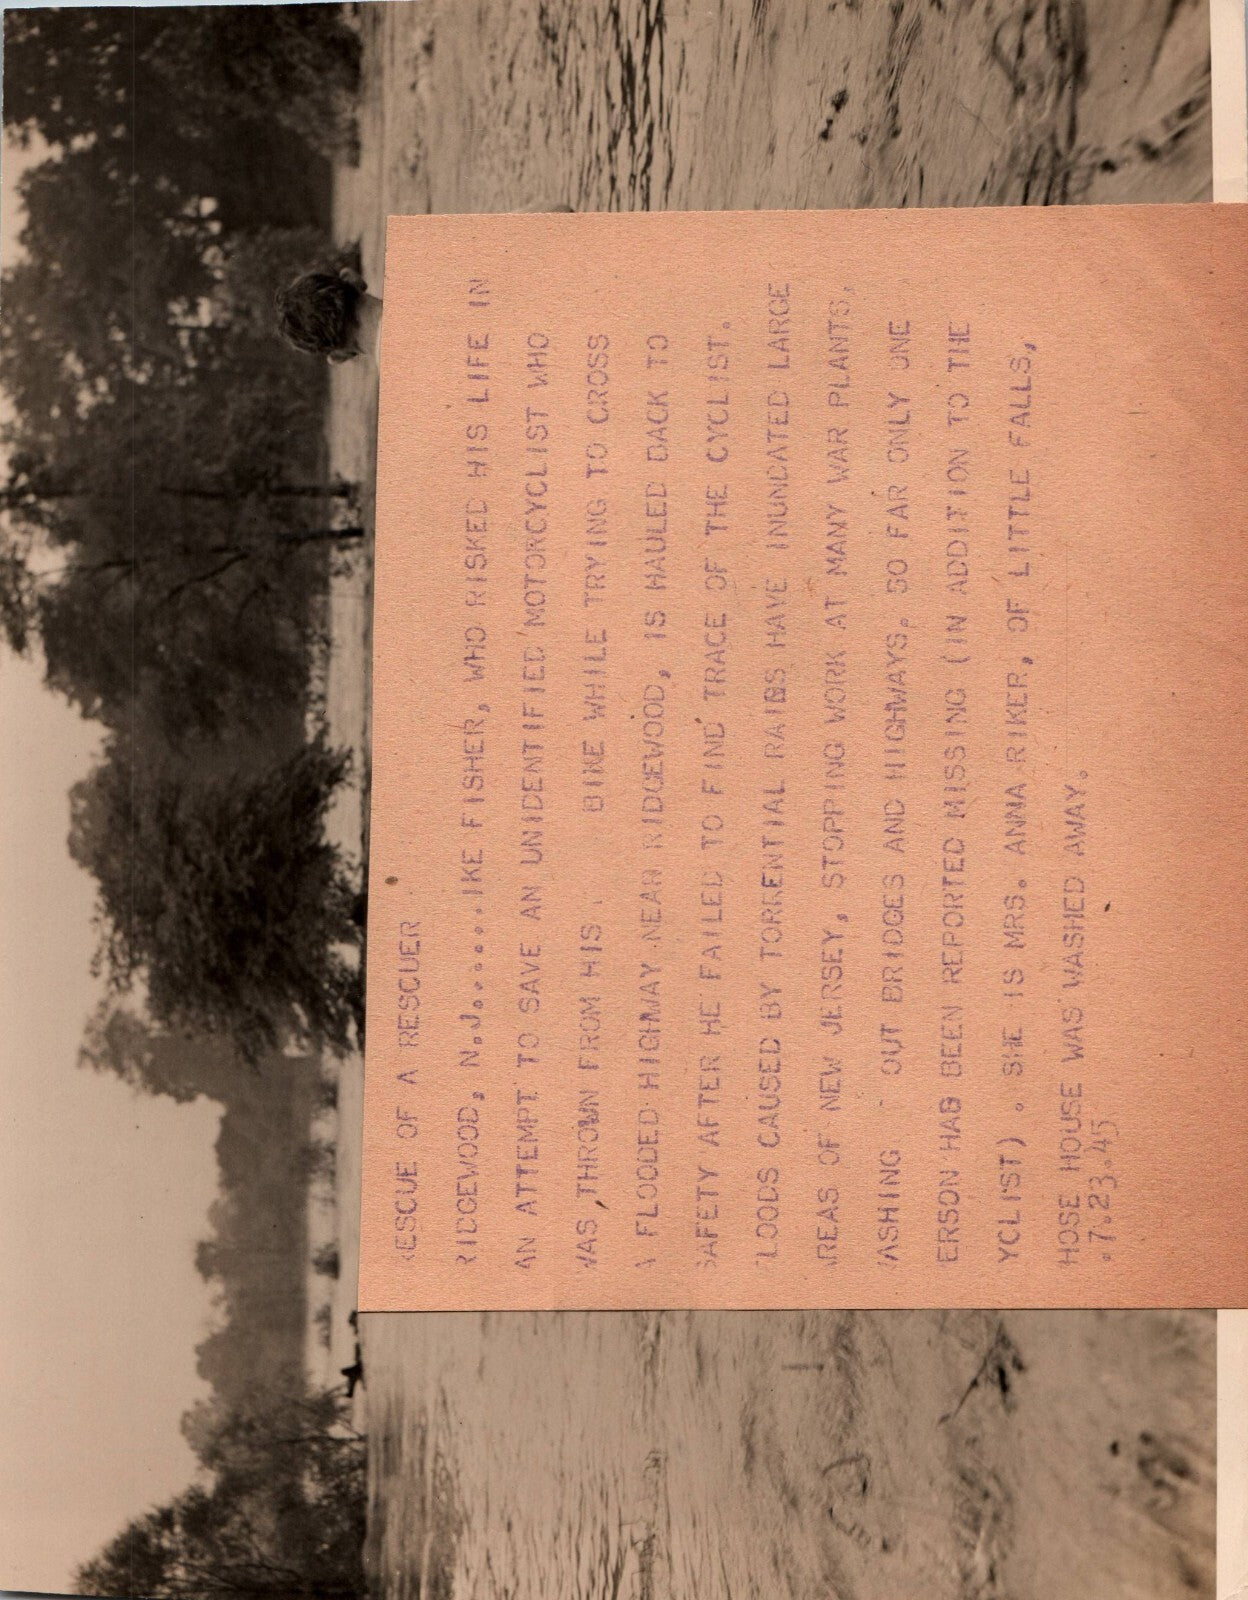 RESCUE OF A RESCUER
RIDGEWOOD, N.J.......IKE FISHER, WHO RISKED HIS LIFE IN
AN ATTEMPT TO SAVE AN UNIDENTIFIED MOTORCYCLIST WHO
WAS THROWN FROM HIS BIKE WHILE TRYING TO CROSS
A FLOODED HIGHWAY NEAR RIDGEWOOD, IS HAULED BACK TO
SAFETY AFTER HE FAILED TO FIND TRACE OF THE CYCLIST.
FLOODS CAUSED BY TORRENTIAL RAINS HAVE INUNDATED LARGE
AREAS OF NEW JERSEY, STOPPING WORK AT MANY WAR PLANTS,
WASHING OUT BRIDGES AND HIGHWAYS. SO FAR ONLY ONE
PERSON HAS BEEN REPORTED MISSING (IN ADDITION TO THE
CYCLIST). SHE IS MRS. ANNA RIKER, OF LITTLE FALLS,
WHOSE HOUSE WAS WASHED AWAY.
.7.23.45